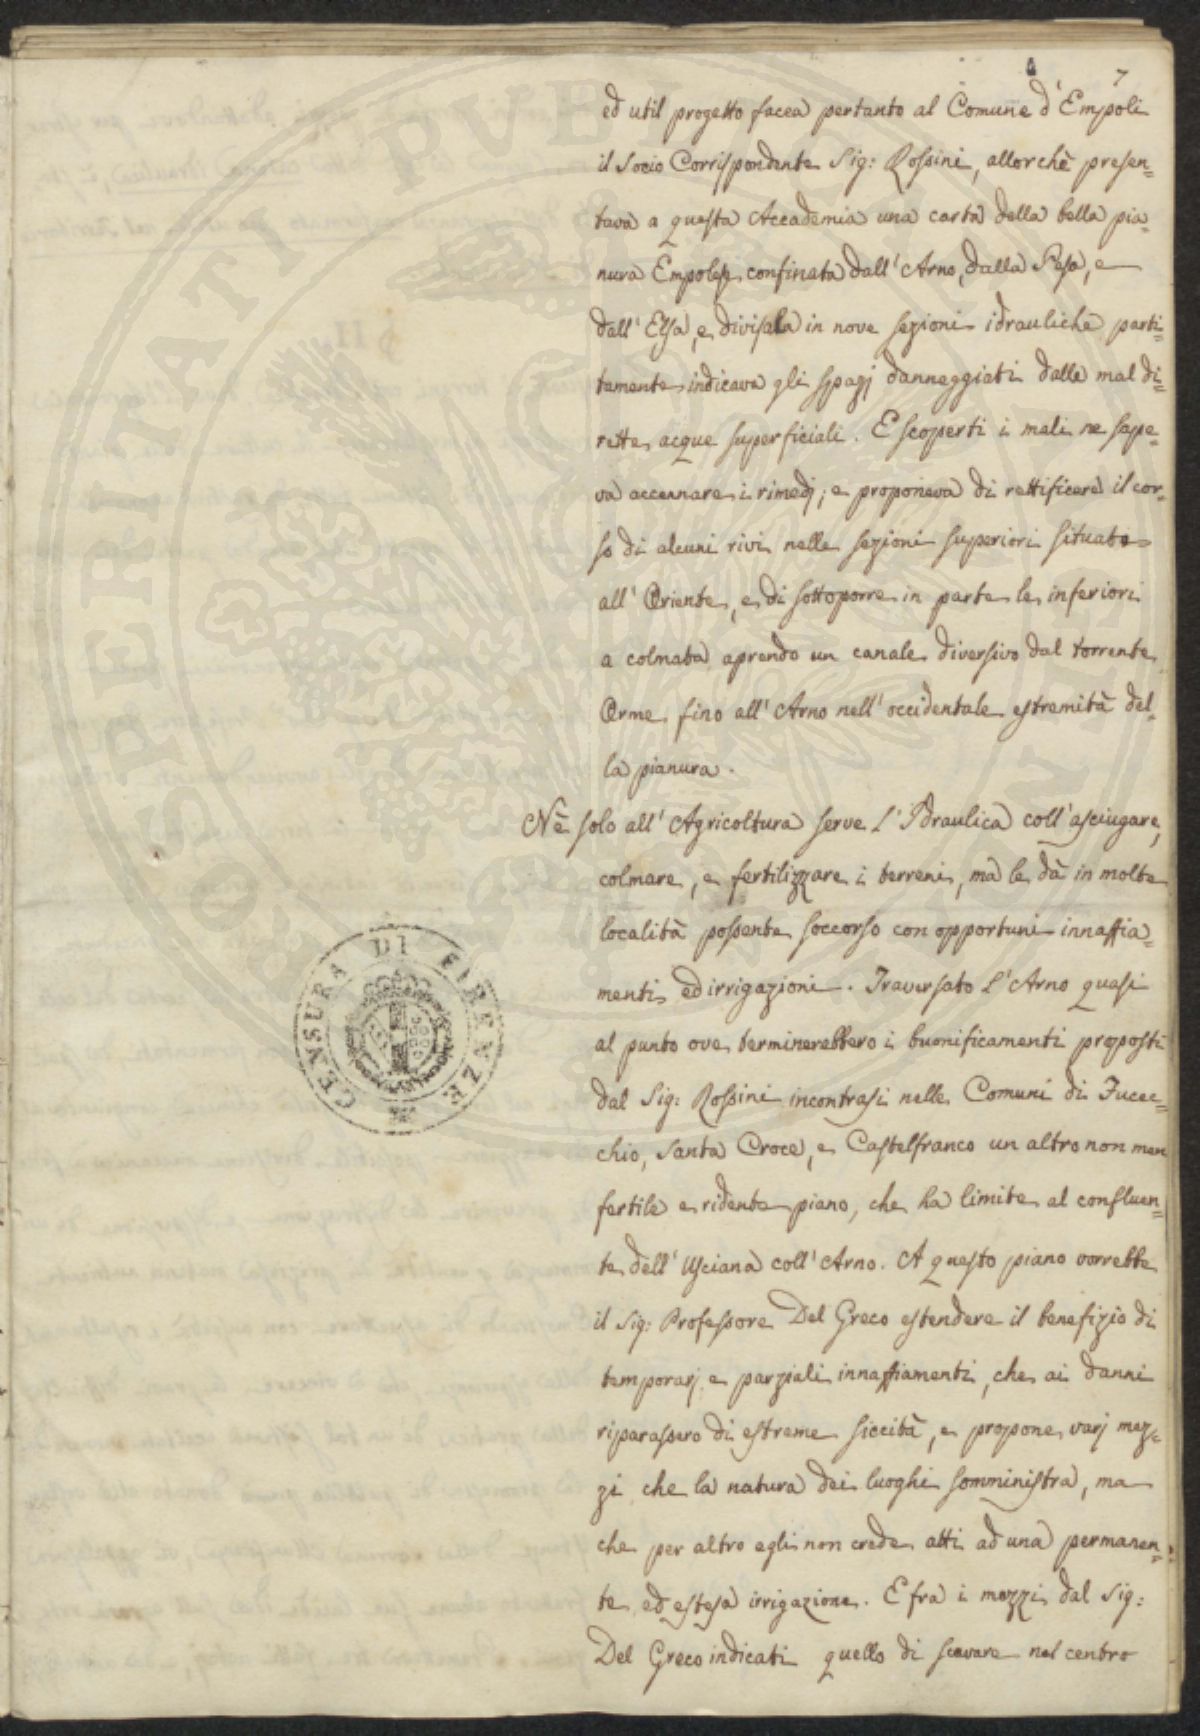 7
ed util progetto facea pertanto al Comune d'Empoli
il Socio Corrispondente Sig: Rossini, allorchè presen=
tava a questa Accademia una carta della bella pia=
nura Empolese confinata dall'Arno, dalla Pesa, e
dall'Elsa, e divisala in nove sezioni idrauliche parti=
tamente indicava gli spazj danneggiati dalle mal di=
rette acque superficiali. E scoperti i mali ne sape=
va accennare i rimedj; e proponeva di rettificare il cor=
so di alcuni rivi nelle sezioni superiori situate
all'Oriente, e di sottoporre in parte le inferiori
a colmata aprendo un canale diversivo dal torrente
Orme fino all'Arno nell'occidentale estremità del=
la pianura.
Nè solo all'Agricoltura serve l'Idraulica coll'asciugare,
colmare, e fertilizzare i terreni, ma le dà in molte
località possente soccorso con opportuni innaffia=
menti ed irrigazioni. Traversato l'Arno quasi
al punto ove terminerebbero i buonificamenti proposti
dal Sig: Rossini incontrasi nelle Comuni di Fucec=
chio, Santa Croce, e Castelfranco un altro non men
fertile e ridente piano, che ha limite al confluen=
te dell'Usciana coll'Arno. A questo piano vorrebbe
il Sig: Professore Del Greco estendere il benefizio di
temporarj e parziali innaffiamenti, che ai danni
riparassero di estreme siccità, e propone varj mez=
zi che la natura dei luoghi somministra, ma
che per altro egli non crede atti ad una permanen=
te ed estesa irrigazione. E fra i mezzi dal Sig:
Del Greco indicati quello di scavare nel centro
CENSURA DI FIRENZE
PROSPERITATI PUBLICAE